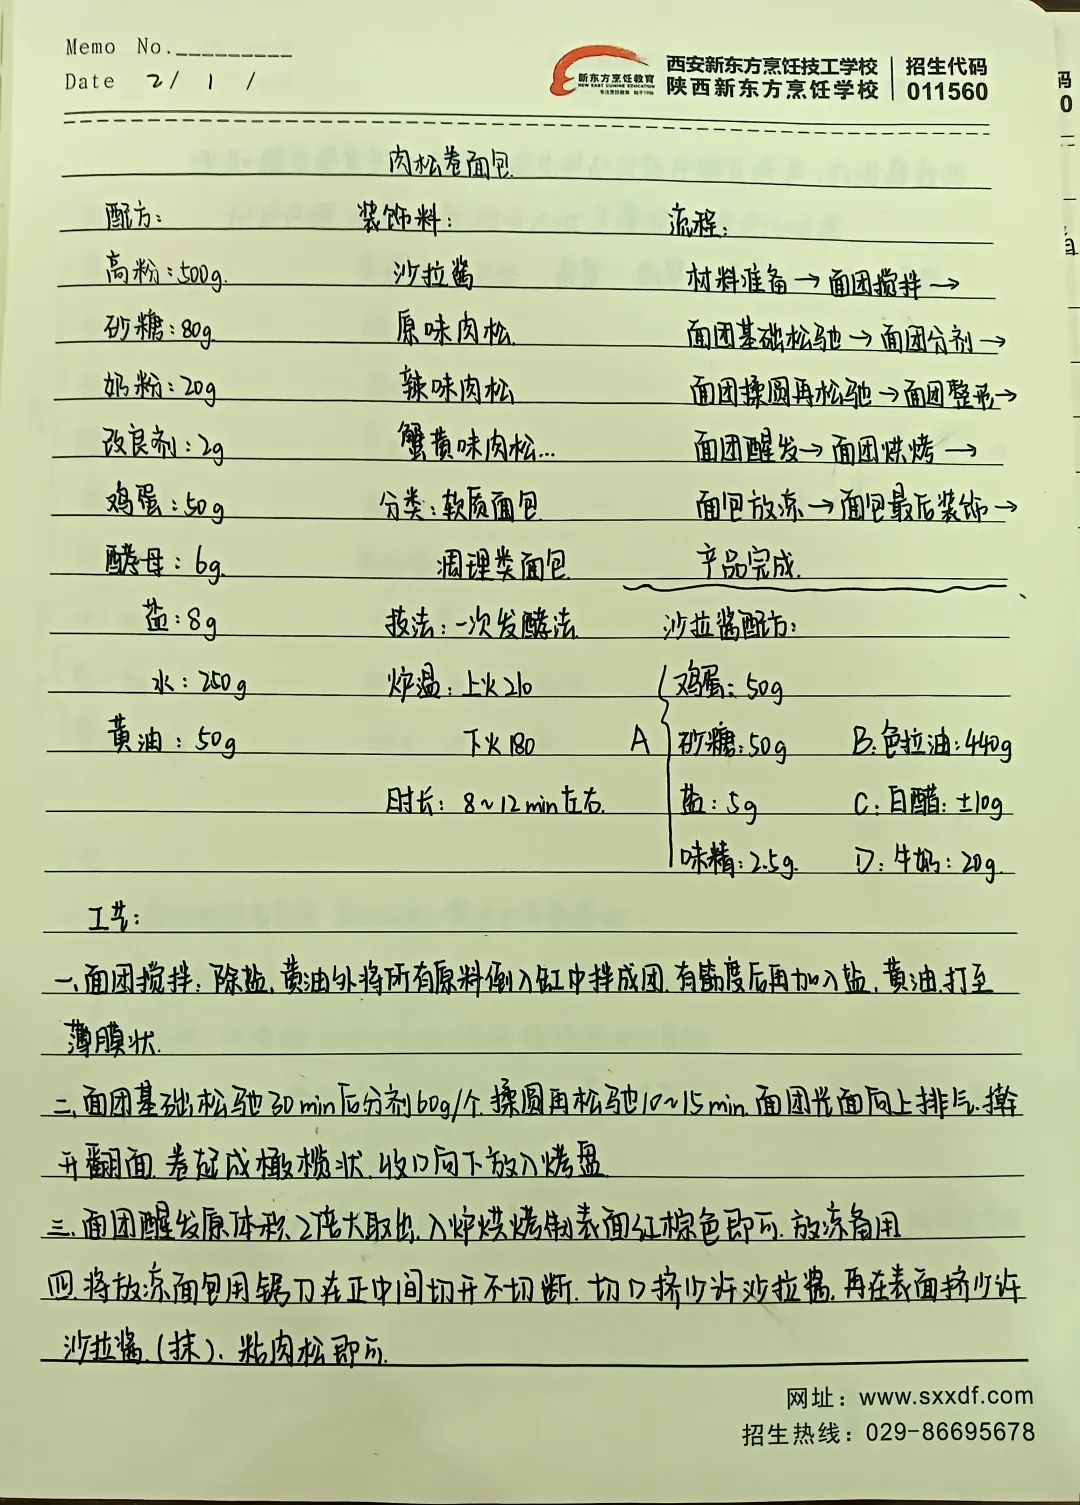 Memo No.
Date 2/ 1 /
新东方烹饪教育
NEW EAST CUISINE EDUCATION
西安新东方烹饪技工学校
陕西新东方烹饪学校
招生代码
011560
肉松卷面包
配方: 装饰料: 流程:
高粉:500g. 沙拉酱 材料准备→面团搅拌→
砂糖:80g. 原味肉松 面团基础松驰→面团分剂→
奶粉:20g 辣味肉松 面团揉圆再松驰→面团整形→
改良剂:2g 蟹黄味肉松... 面团醒发→面团烘烤→
鸡蛋:50g 分类:软质面包 面包放凉→面包最后装饰→
酵母:6g. 调理类面包 产品完成.
盐:8g 技法:一次发酵法 沙拉酱配方:
水:250g 炉温:上火210 鸡蛋:50g
黄油:50g 下火180 A 砂糖:50g B:色拉油:440g
时长:8~12min左右. 盐:5g C:白醋:±10g
味精:2.5g. D:牛奶:20g.
工艺:
一、面团搅拌:除盐、黄油外将所有原料倒入缸中拌成团.有筋度后再加入盐,黄油.打至
薄膜状.
二、面团基础松驰30min后分剂60g/个.揉圆再松驰10~15min.面团光面向上排气.擀
开翻面.卷起成橄榄状.收口向下放入烤盘
三.面团醒发原体积2倍大取出.入炉烘烤制表面红棕色即可.放凉备用
四.将放凉面包用锯刀在正中间切开不切断.切口挤少许沙拉酱.再在表面挤少许
沙拉酱.(抹).粘肉松即可.
网址:www.sxxdf.com
招生热线:029-86695678